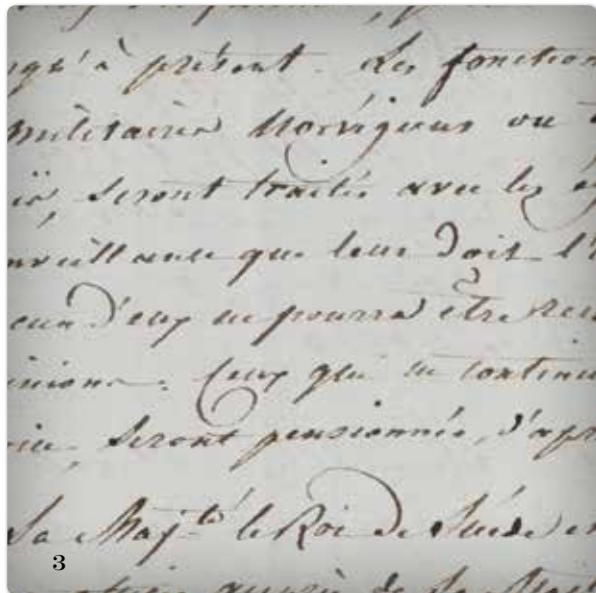 squ'à présent. Les fonction
militaires Norvégiens ou
seront traités avec les
nveillance que leur doit l'
cun d'eux ne pourra être
inions. Ceux qui ne continu
seront pensionnés, d'apr
Sa Maj.té le Roi de Suède en
3
auprès de Sa